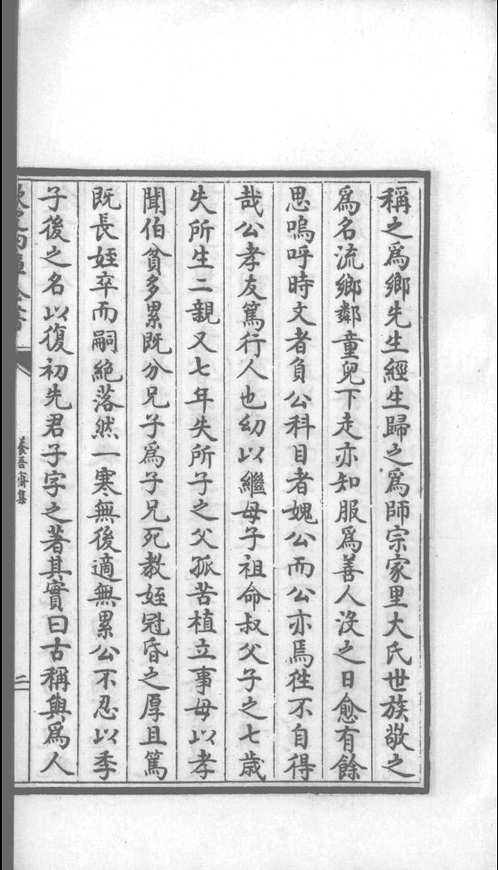 稱之爲鄉先生經生歸之爲師宗家里大氏世族敬之
爲名流鄉鄰童兒下走亦知服爲善人沒之日愈有餘
思嗚呼時文者負公科目者媿公而公亦焉徃不自得
哉公孝友篤行人也幼以繼母子祖命叔父子之七歲
失所生二親又七年失所子之父孤苦植立事母以孝
聞伯貧多累既分兄子爲子兄死教姪冠昏之厚且篤
既長姪卒而嗣絶落然一寒無後適無累公不忍以季
子後之名以復初先君子字之著其實曰古稱與爲人
養吾齋集
二